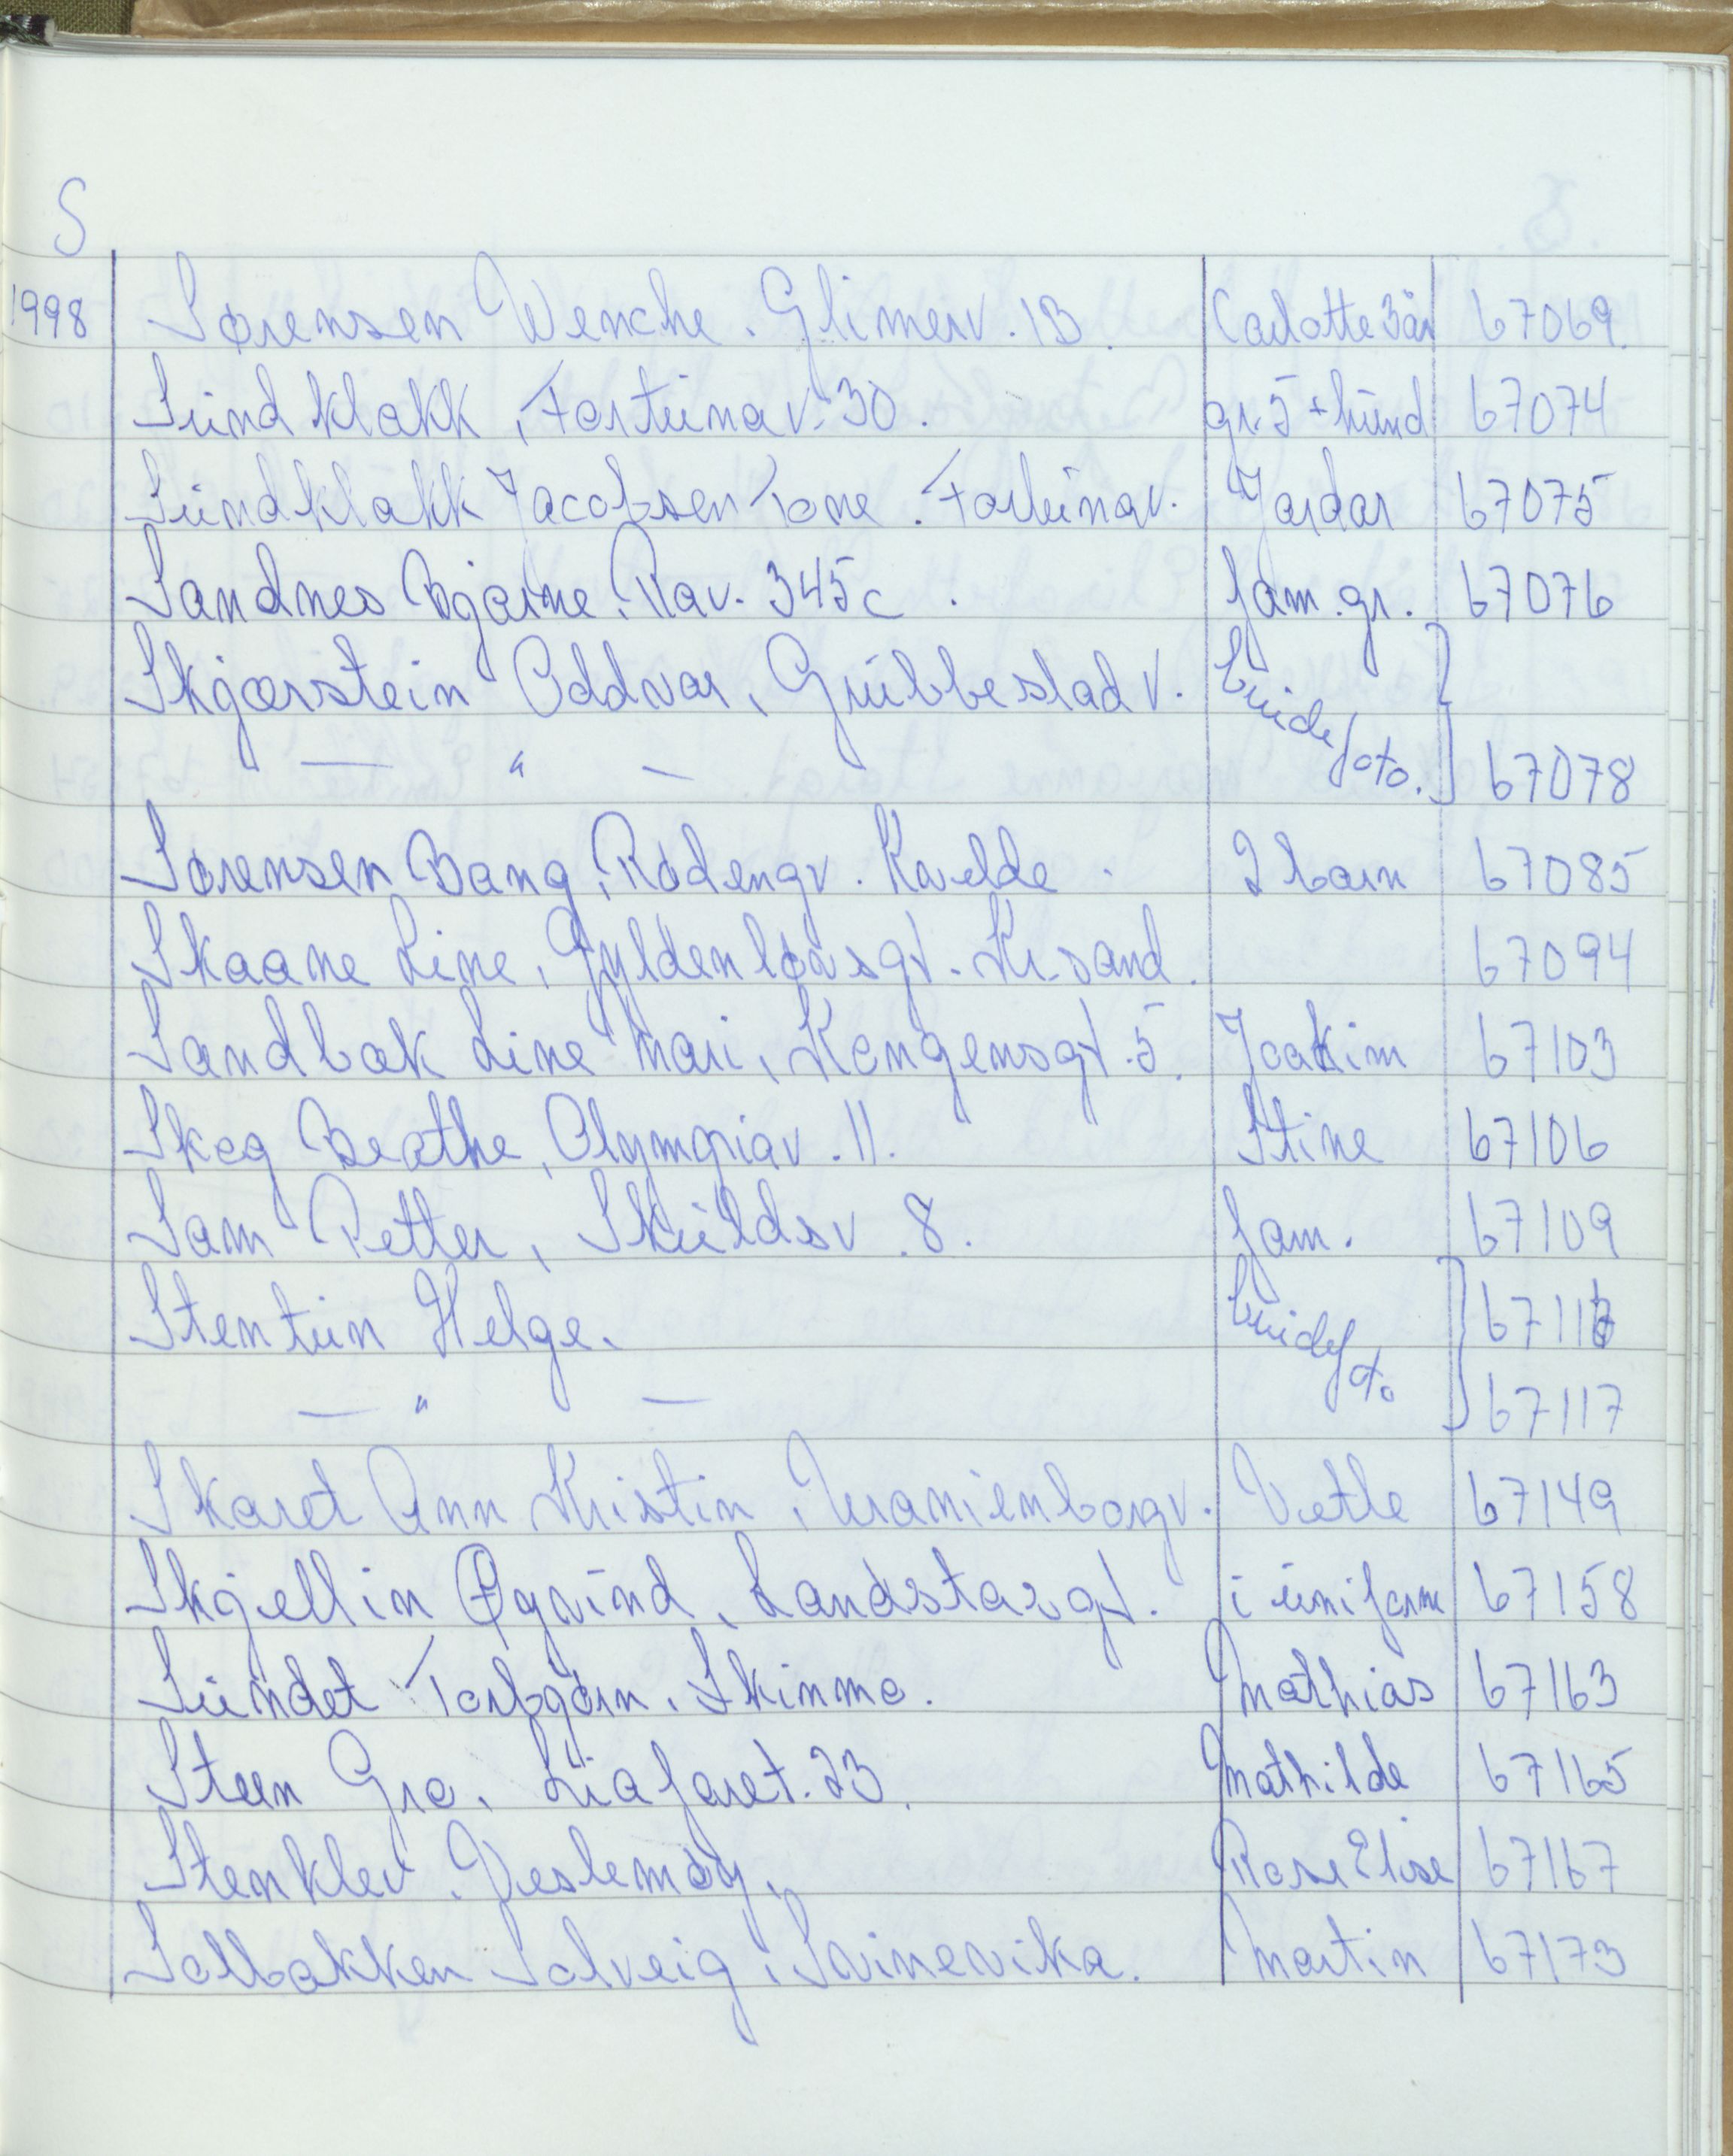 S
1998 Sørensen Wenche. Glimerv. 13. Carlotte 3år 67069.
Sundklakk, Fortunav. 30. gr. 5 + hund 67074
Sundklakk Jacobsen Tone. Fortunav. Jardar 67075
Sandnes Bjarne, Rav. 345c. fam. gr. 67076
Skjærstein Oddvar, Grubbestadv. brude
— " — foto. 67078
Sørensen Bang, Rødengv. Kvelde. 2 barn 67085
Skaane Line, Gyldenløvsgt. Kr.sand. 67094
Sandbak Line Mari, Kongensgt. 5. Joakim 67103
Skog Beathe, Olympiav. 11. Stine 67106
Sam Petter, Skuldsv. 8. fam. 67109
Stentun Helge. brudef 67116
— " — oto 67117
Skaret Ann Kristin, Uranienborgv. Vetle 67149
Skjellin Øyvind, Landstasgt. i uniform 67158
Sundet Torbjørn, Skinmo. Mathias 67163
Steen Gro, Liafaret. 23. Mathilde 67165
Stenklev Veslemøy, Rose Elise 67167
Solbakken Solveig, Svinevika. Martin 67173